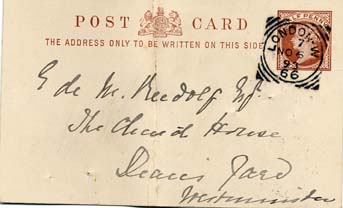 POST CARD
THE ADDRESS ONLY TO BE WRITTEN ON THIS SIDE
HALF PENNY
LONDON.W
7
NO 6
93
66
E de M. Rudolf Esq.
The Church House
Deans Yard
Westminster